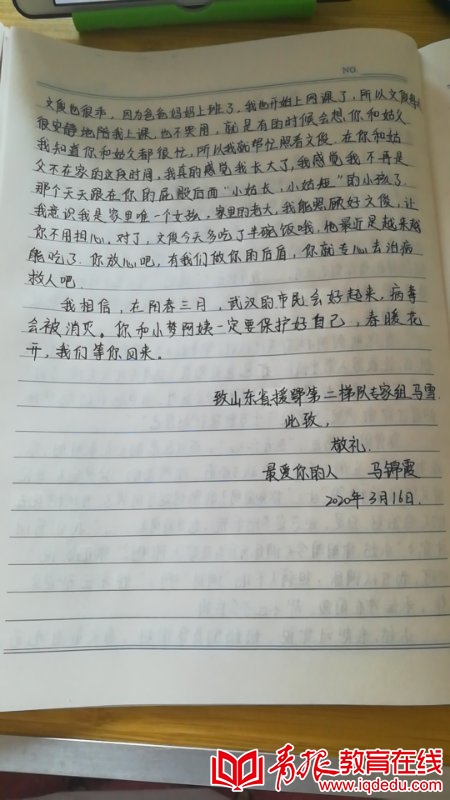 NO.
文俊也很乖,因为爸爸妈妈上班了,我也开始上网课了,所以文俊每天
很安静地陪我上课,也不哭闹,就是有的时候会想你和姑父
我知道你和姑父都很忙,所以我就帮忙照看文俊。在你和姑
父不在家的这段时间,我真的感觉我长大了,我感觉我不再是
那个天天跟在你的屁股后面“小姑长,小姑短”的小孩了.
我意识我是家里唯一个女孩,家里的老大,我能照顾好文俊,让
你不用担心,对了,文俊今天多吃了半碗饭哦,他最近是越来越
能吃了.你放心吧,有我们做你的后盾,你就专心去治病
救人吧.
我相信,在阳春三月,武汉的市民会好起来,病毒
会被消灭。你和小梦阿姨一定要保护好自己,春暖花
开,我们等你回来。
致山东省援鄂第二梯队专家组 马雪.
此致,
敬礼.
最爱你的人 马锦霞
2020年3月16日.
青报教育在线
www.iqdedu.com